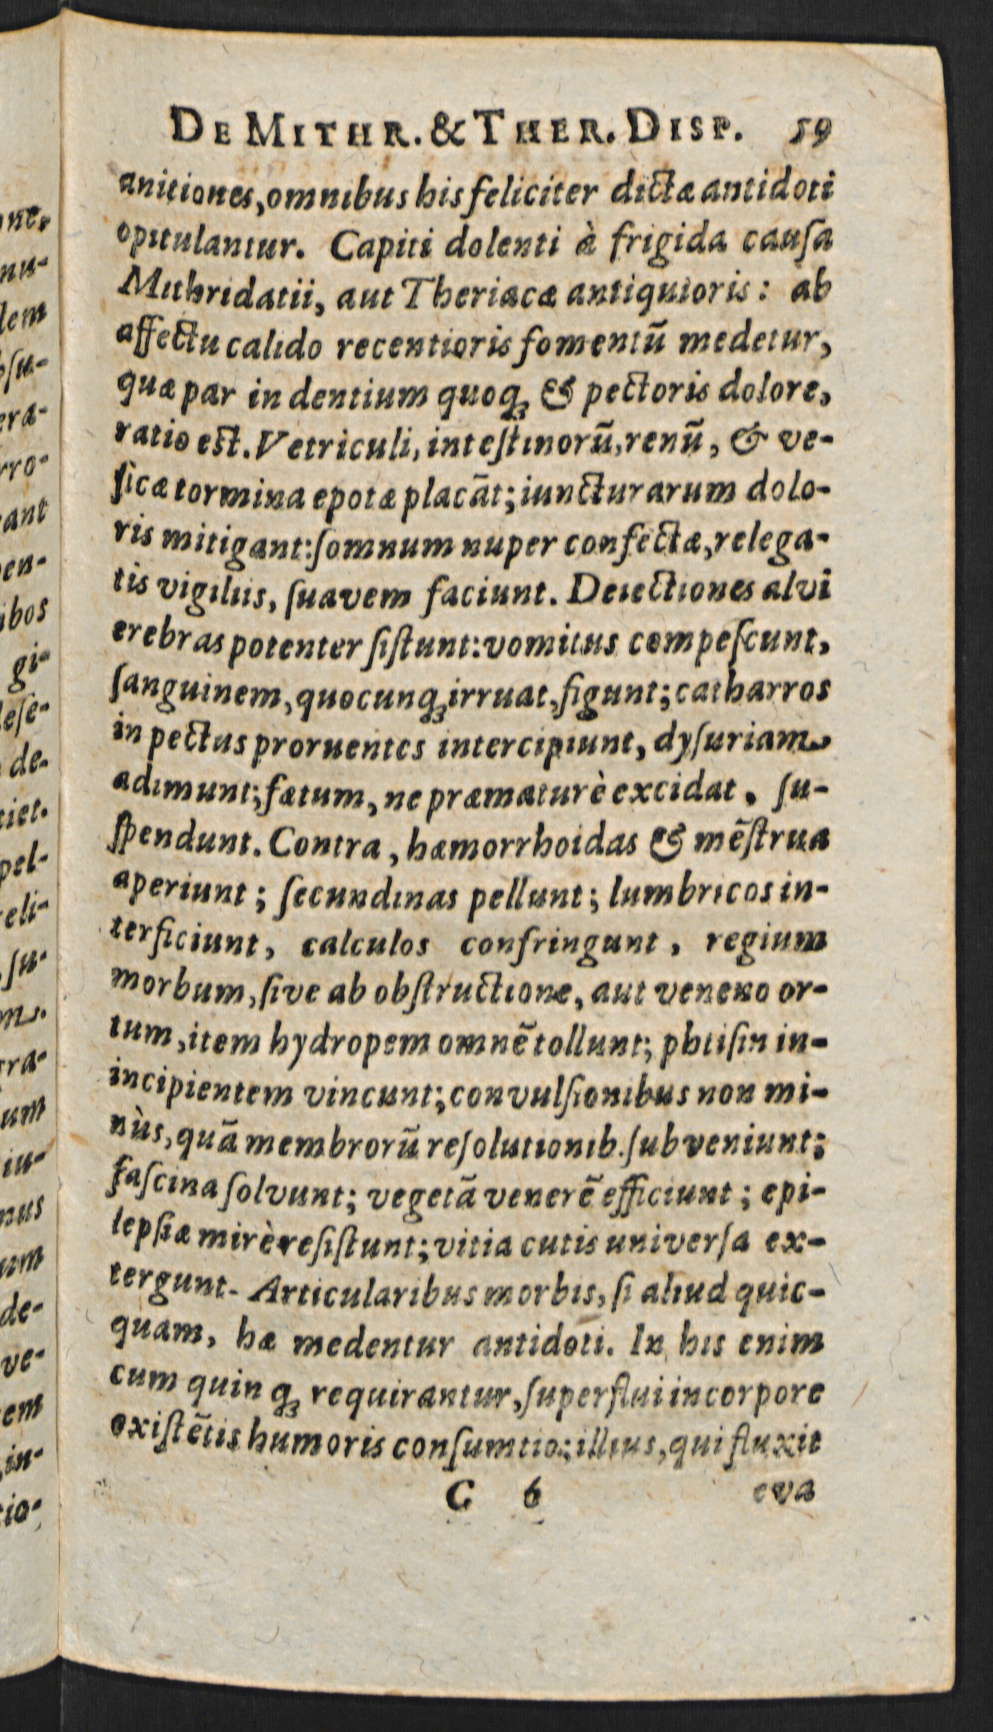 DE MITHR. & THER. DISP. 59
anitiones, omnibus his feliciter dictæ antidoti
opitulantur. Capiti dolenti à frigida cauſa
Mithridatii, aut Theriacæ antiquioris: ab
affectu calido recentioris fomentū medetur,
quæ par in dentium quoqꝫ & pectoris dolore,
ratio est. Vetriculi, inteſtinorū, renū, & ve-
ſicæ tormina epotæ placāt; iuncturarum dolo-
ris mitigant: ſomnum nuper confectæ, relega-
tis vigiliis, ſuavem faciunt. Deiectiones alvi
erebras potenter ſiſtunt: vomitus compeſcunt,
ſanguinem, quocunqꝫ irruat, figunt; catharros
in pectus proruentes intercipiunt, dyſuriam
adimunt; fætum, ne præmaturè excidat, ſu-
ſpendunt. Contra, hæmorrhoidas & mēſtrua
aperiunt; ſecundinas pellunt; lumbricos in-
terficiunt, calculos confringunt, regium
morbum, ſive ab obſtructione, aut veneno or-
tum, item hydropem omnē tollunt; phtiſin in-
incipientem vincunt; convulſionibus non mi-
nùs, quā membrorū reſolutionib. ſubveniunt;
faſcina ſolvunt; vegetā venerē efficiunt; epi-
lepſiæ mirè reſiſtunt; vitia cutis univerſa ex-
tergunt. Articularibus morbis, ſi aliud quic-
quam, hæ medentur antidoti. In his enim
cum quinqꝫ requirantur, ſuperflui in corpore
exiſtētis humoris conſumtio; illius, qui fluxit
C 6 eva
one,
nu-
dem
bſu-
era-
rro-
rant
pen-
ibos
gi-
leſe-
de-
tiet.
pel-
reli-
ſu-
m.
tra-
um
iu-
nus
um
de-
ve-
tem
in-
tio-